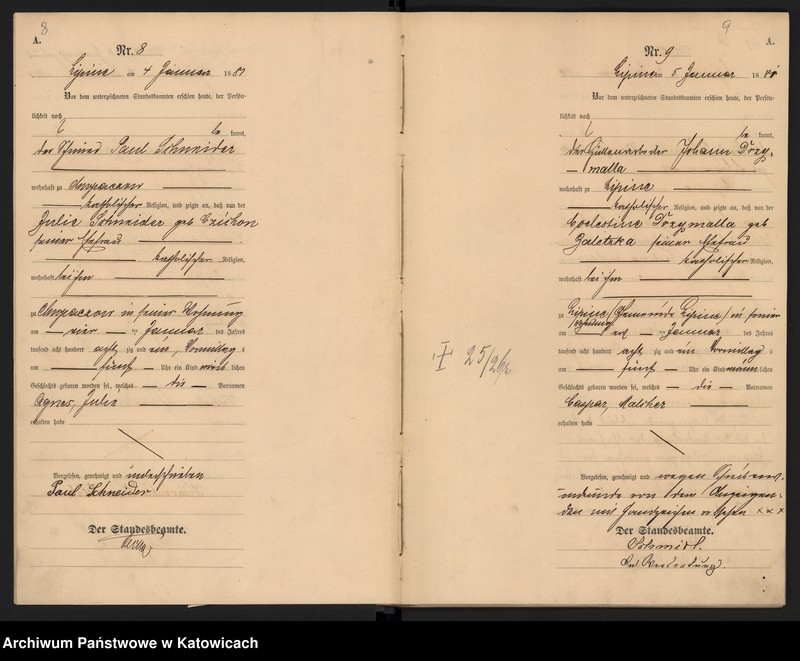 8
A.
Nr. 8
Lipine am 4 Januar 1881
Vor dem unterzeichneten Standesbeamten erschien heute, der Persön-
lichkeit nach
be kannt,
der Schmied Paul Schneider
wohnhaft zu Chropaczow
katholischer Religion, und zeigte an, daß von der
Julie Schneider geb
seiner Ehefrau
katholischer Religion,
wohnhaft bei ihm
zu Chropaczow in seiner Wohnung
am vier ten Januar des Jahres
tausend acht hundert acht zig und ein, Vormittag s
um fünf Uhr ein Kind weib lichen
Geschlechts geboren worden sei, welches die Vornamen
Agnes, Julie
erhalten habe
Vorgelesen, genehmigt und unterschrieben
Paul Schneider
Der Standesbeamte.
9
A.
Nr. 9
Lipine am 5 Januar 1881
Vor dem unterzeichneten Standesbeamten erschien heute, der Persön-
lichkeit nach
be kannt,
der Hüttenarbeiter Johann Drzy-
malla
wohnhaft zu Lipine
katholischer Religion, und zeigte an, daß von der
Coelestine Drzymalla geb
Galetzka seiner Ehefrau
katholischer Religion,
wohnhaft bei ihm
zu Lipine (Gemeinde Lipine) in seiner
Wohnung
am Januar des Jahres
tausend acht hundert acht zig und ein Vormittag s
um fünf Uhr ein Kind männ lichen
Geschlechts geboren worden sei, welches die Vornamen
Caspar, Malcher
erhalten habe
I 25/2
Vorgelesen, genehmigt und wegen Schreibens-
unkunde von dem Anzeigen-
den mit Handzeichen versehen x x x
Der Standesbeamte.
Schmidt.
In Vertretung.
Archiwum Państwowe w Katowicach